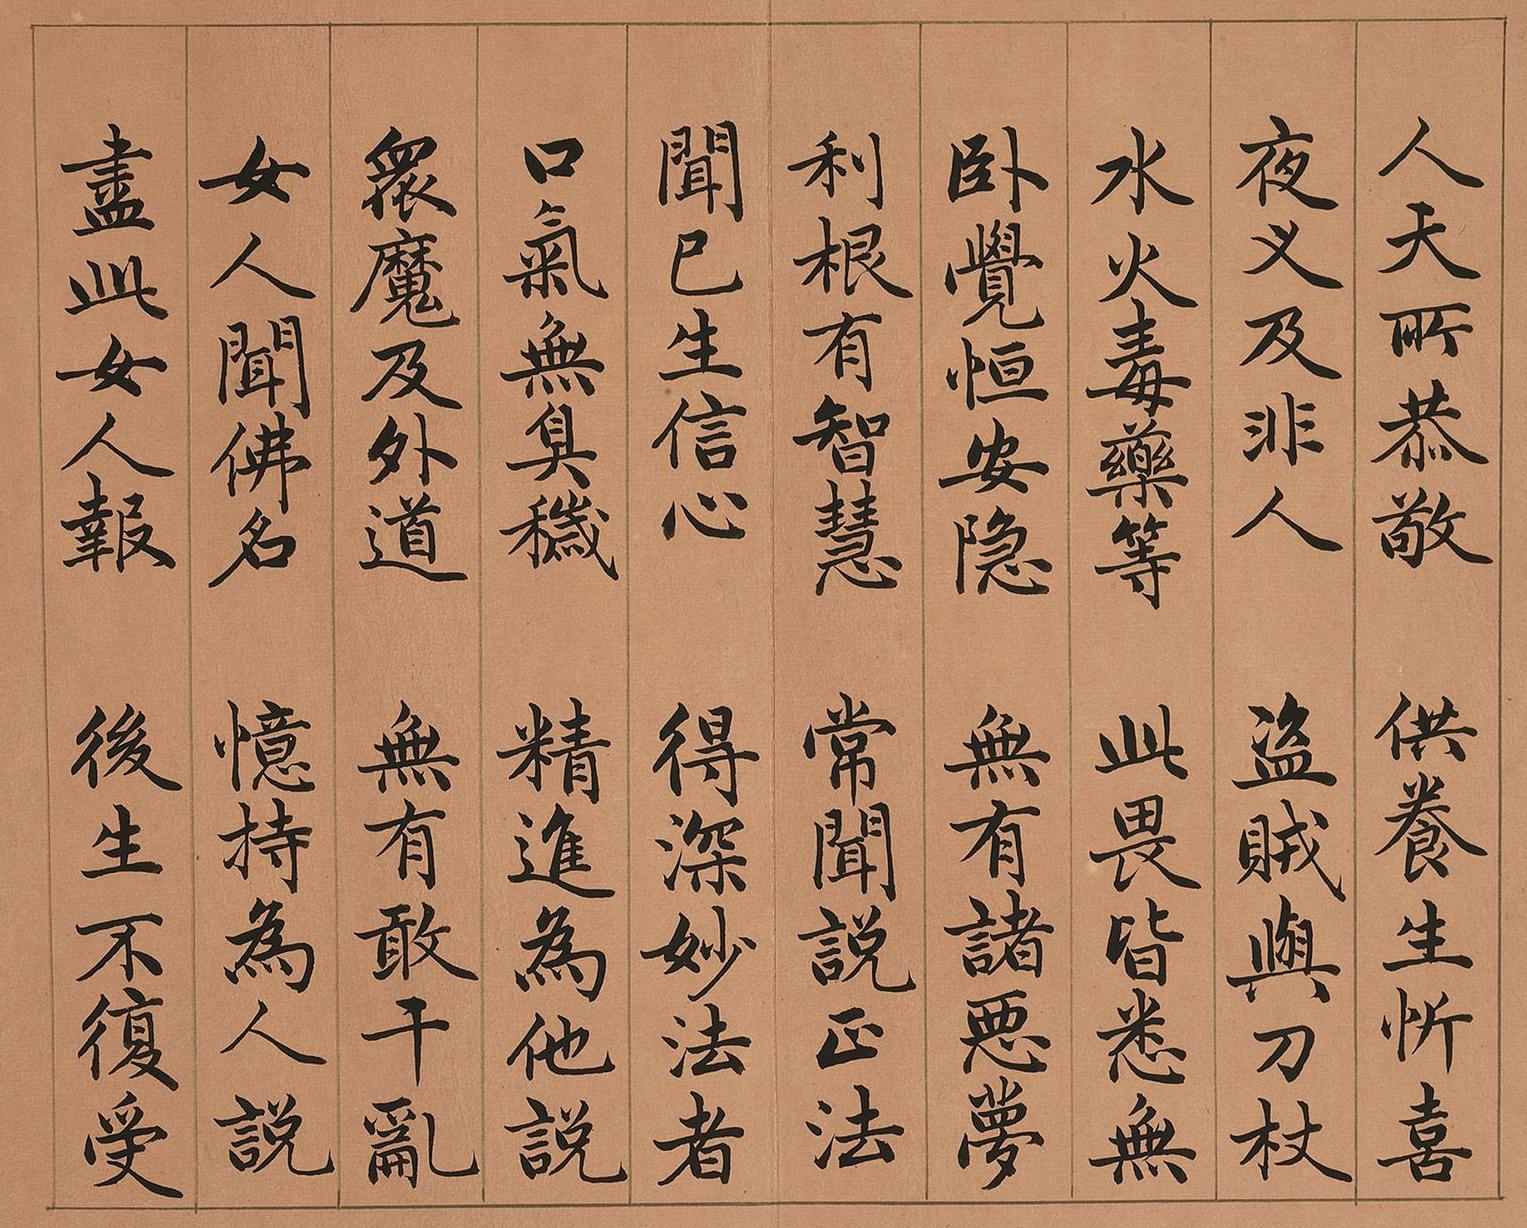 人天所恭敬 供養生忻喜
夜义及非人 盗賊與刀杖
水火毒藥等 此畏皆悉無
卧覺恒安隐 無有諸惡夢
利根有智慧 常聞説正法
聞已生信心 得深妙法者
口氣無臭穢 精進為他説
眾魔及外道 無有敢干亂
女人聞佛名 憶持為人説
盡此女人報 後生不復受